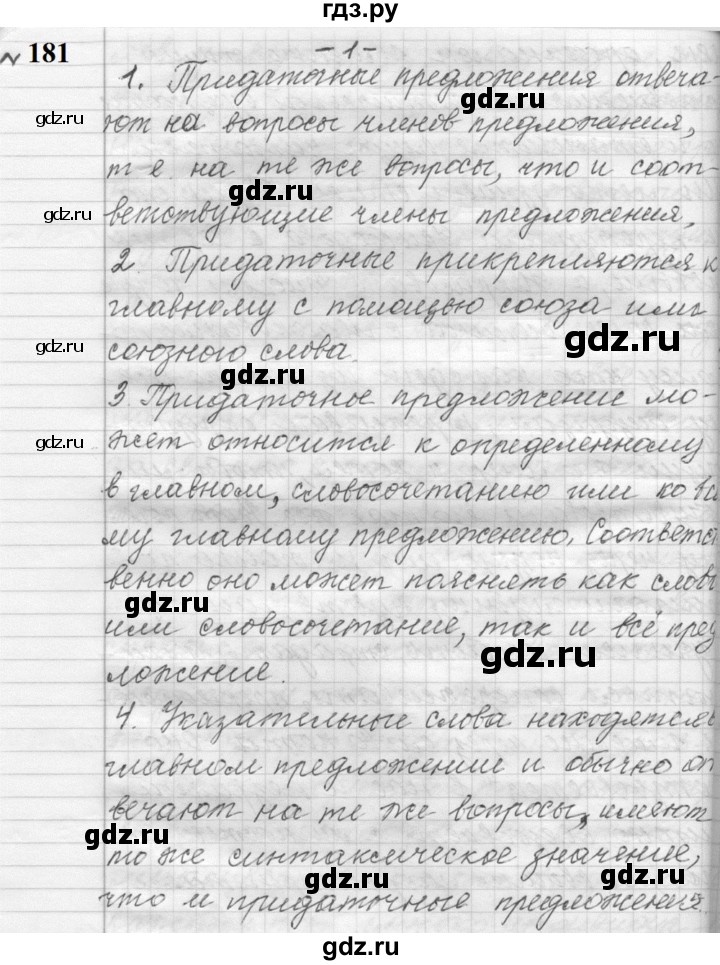 гдз.ру
№ 181
- 1 -
1. Придаточные предложения отвеча-
gdz.ru
gdz.ru
ют на вопросы членов предложения,
т е. на те же вопросы, что и соот-
gdz.ru
gdz.ru
ветствующие члены предложения.
2. Придаточные прикрепляются к
главному с помощью союза или
gdz.ru
gdz.ru
союзного слова.
gdz.ru
3. Придаточное предложение мо-
gdz.ru
жет относится к определенному
в главном, словосочетанию или ко вс
му главному предложению. Соответст
венно оно может пояснять как слово
gdz.ru
или словосочетание, так и всё пред
gdz.ru
ложение.
4. Указательные слова находятся в
главном предложении и обычно от
вечают на те же вопросы, имеют
gdz.ru
то же синтаксическое значение,
gdz.ru
gdz.ru
что и придаточные предложения.
gdz.ru